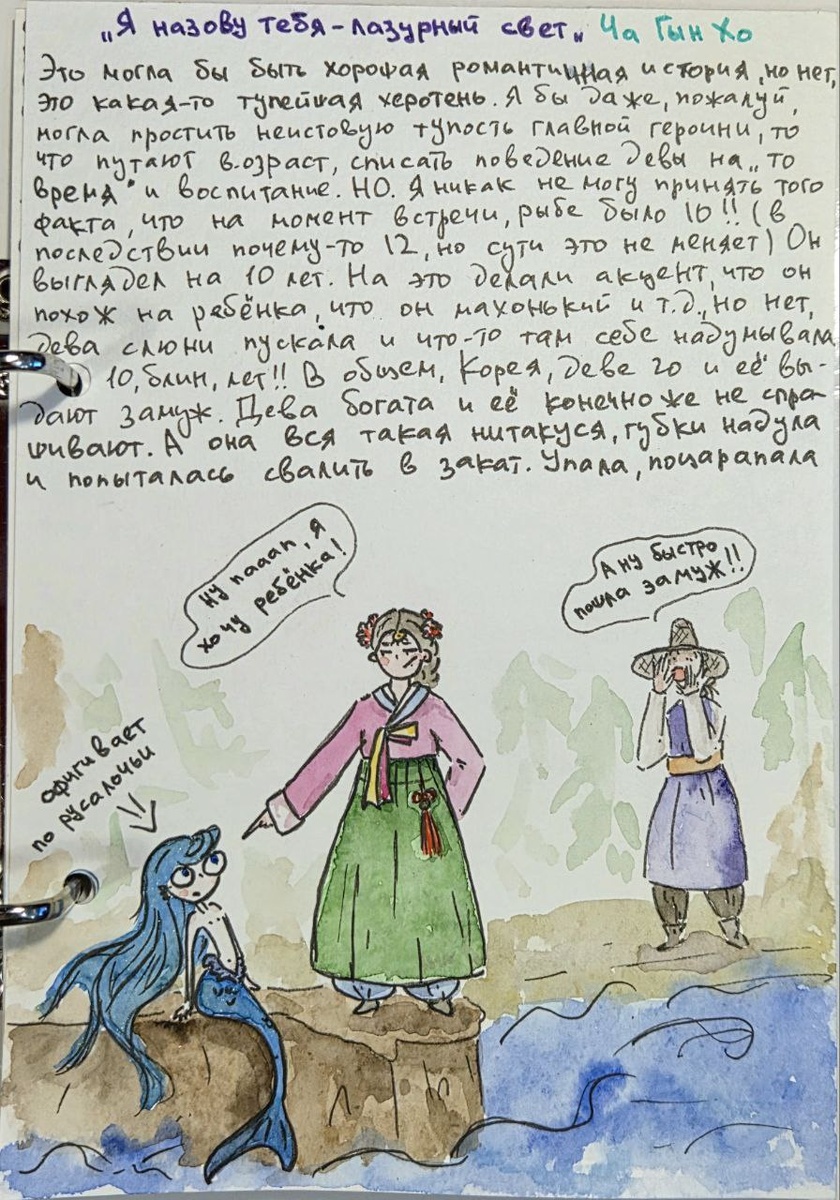 „Я назову тебя - лазурный свет„ Ча Гын Хо
Это могла бы быть хорошая романтичная история, но нет,
это какая-то тупейшая херотень. Я бы даже, пожалуй,
могла простить неистовую тупость главной героини, то
что путают возраст, списать поведение девы на „то
время" и воспитание. НО. Я никак не могу принять того
факта, что на момент встречи, рыбе было 10!! (в
последствии почему-то 12, но сути это не меняет) Он
выглядел на 10 лет. На это делали акцент, что он
похож на ребёнка, что он махонький и т.д., но нет,
дева слюни пускала и что-то там себе надумывала
10, блин, лет!! В общем, Корея, деве 20 и её вы-
дают замуж. Дева богата и её конечно же не спра-
шивают. А она вся такая нитакуся, губки надула
и попыталась свалить в закат. Упала, поцарапала
Ну пааап, я
хочу ребёнка!
А ну быстро
пошла замуж!!
офигивает
по русалочьи